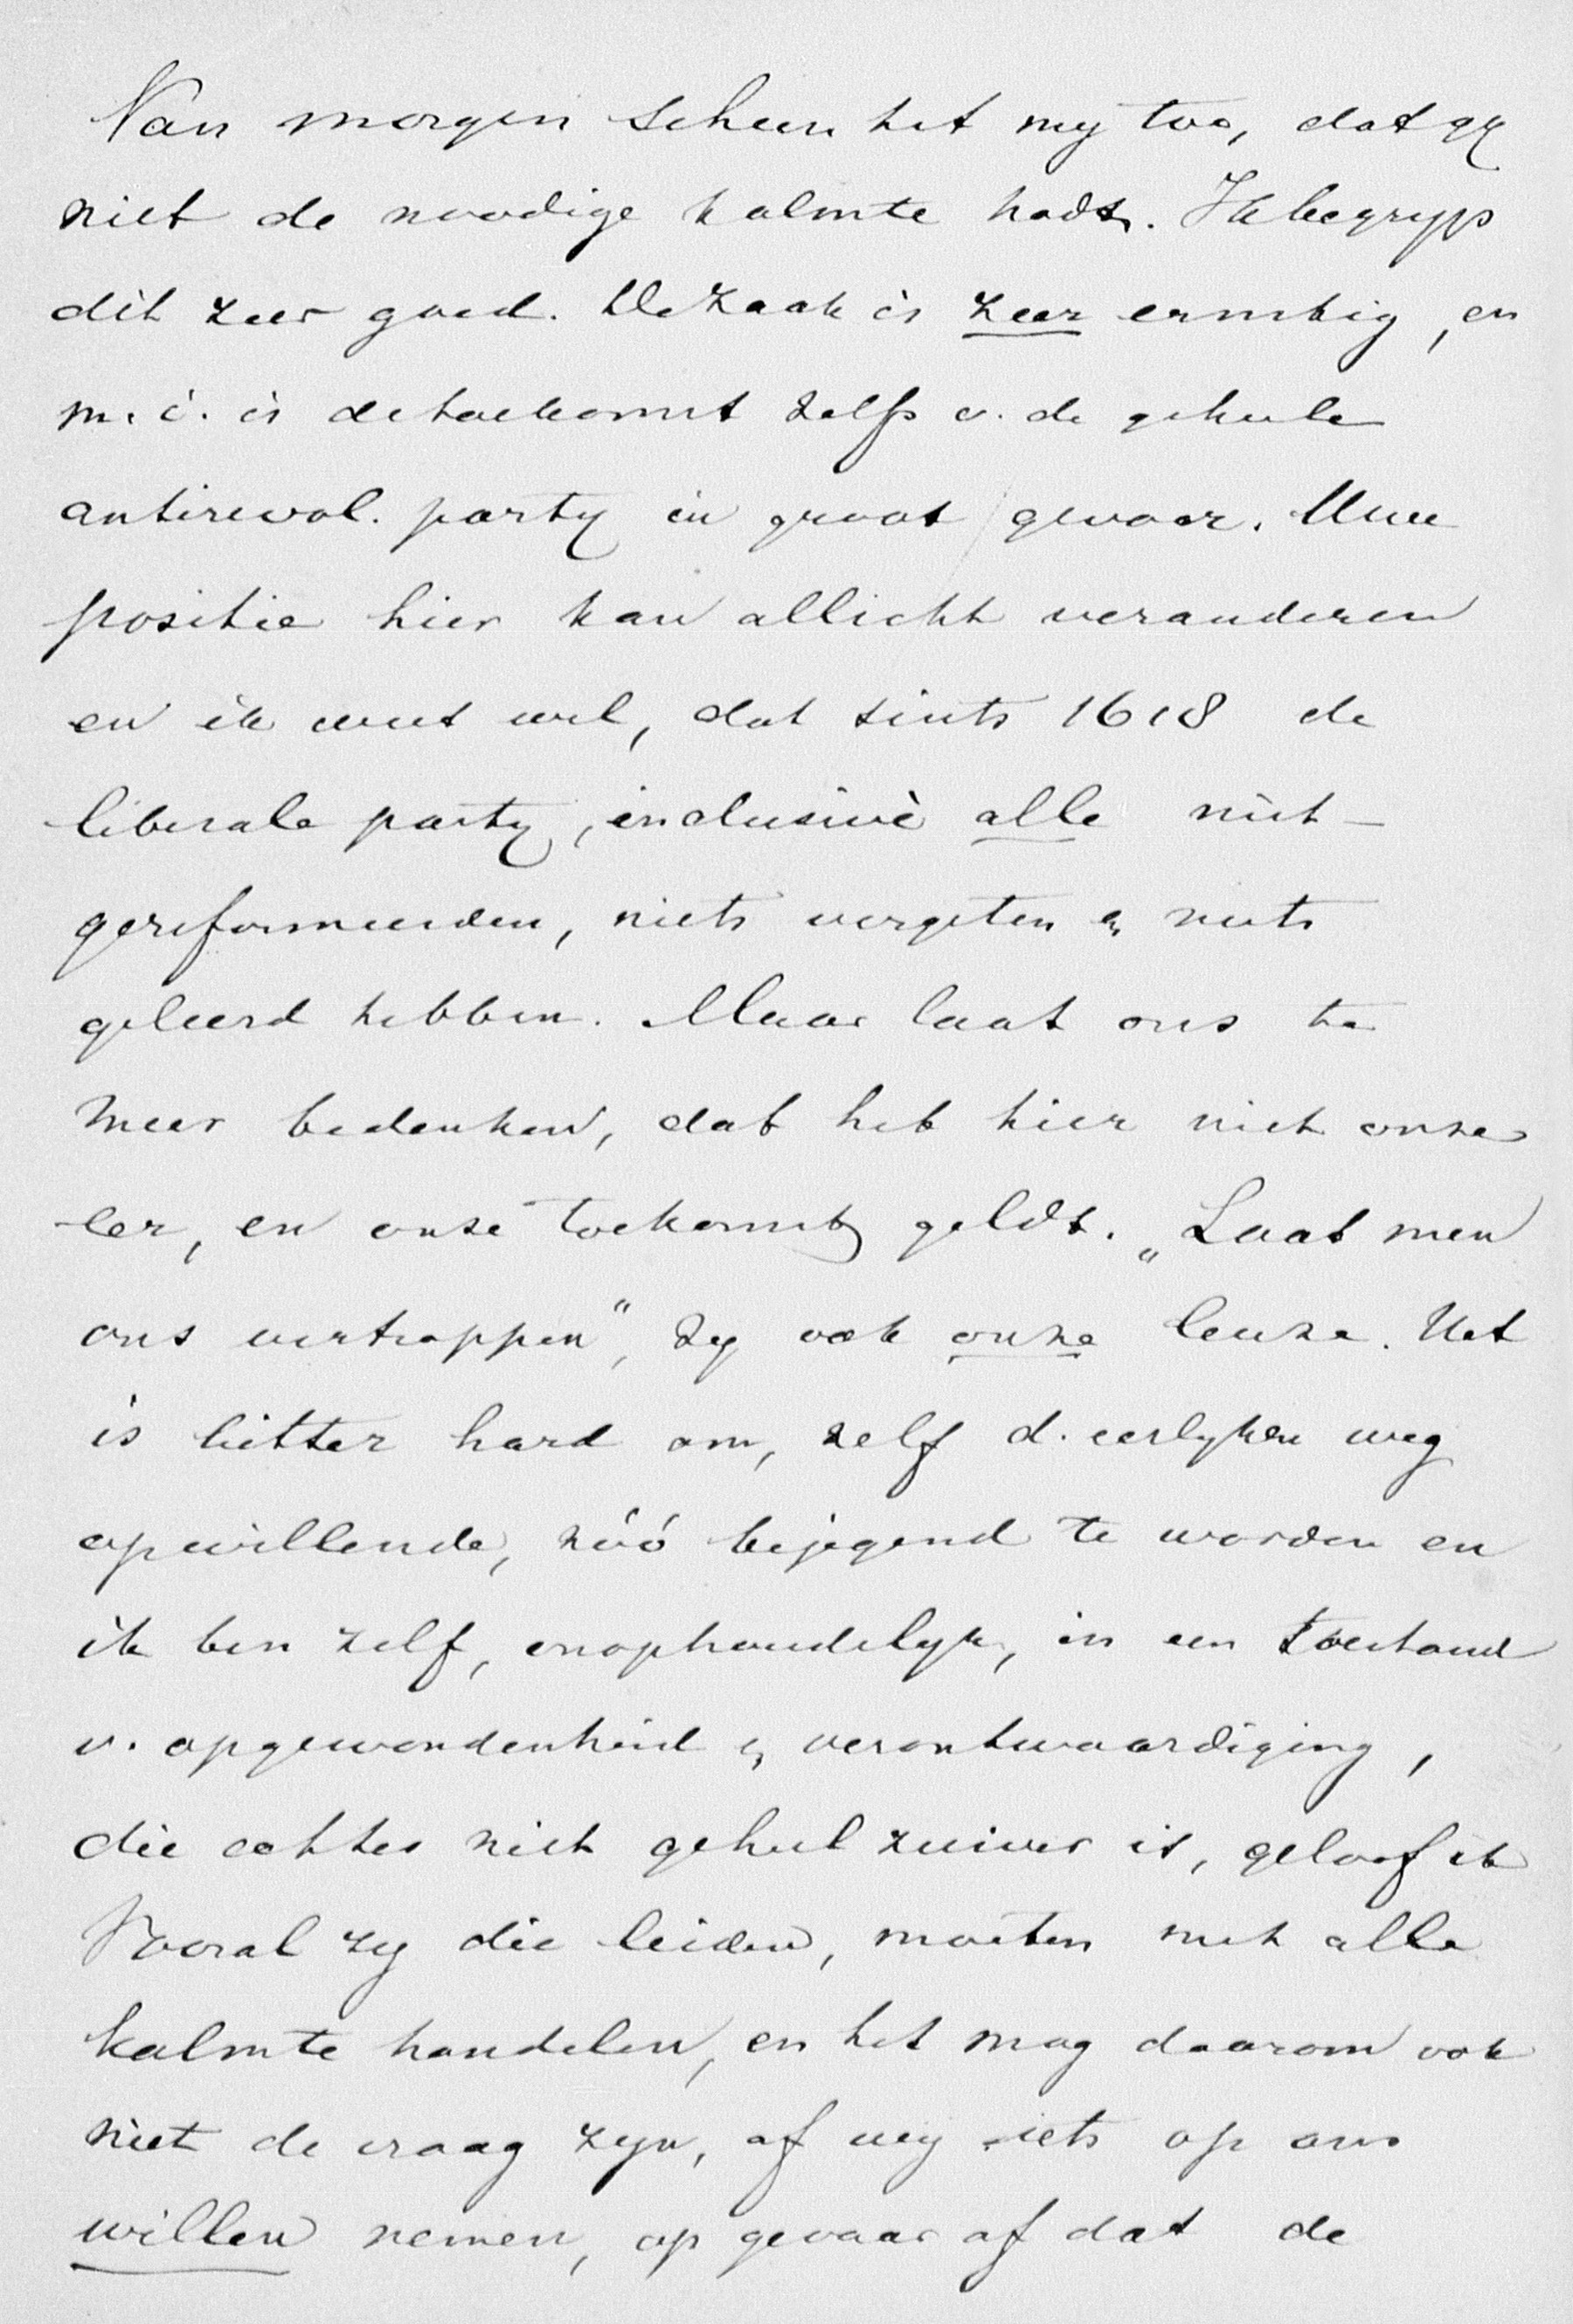 Van morgen scheen het mij toe, dat gij
niet de noodige kalmte hadt. Ik begrijp
dit zeer goed. De zaak is zeer ernstig, en
m. i. is de toekomst zelfs v. de geheele
antirevol. partij in groot gevaar. Uwe
positie hier kan allicht veranderen
en ik weet wel, dat sints 1618 de
liberale partij, inclusivè alle niet-
gereformeerden, niets vergeten en niets
geleerd hebben. Maar laat ons te
meer bedenken, dat het hier niet onze
eer, en onze toekomst geldt. „Laat men
ons vertrappen", zij ook onze leuze. Het
is bitter hard om, zelf d. eerlijken weg
opwillende, zóó bejegend te worden en
ik ben zelf, onophoudelijk, in een toestand
v. opgewondenheid en verontwaardiging,
die echter niet geheel zuiver is, geloof ik
Vooral zij die leiden, moeten met alle
kalmte handelen, en het mag daarom ook
niet de vraag zijn, of wij iets op ons
willen nemen, op gevaar af dat de